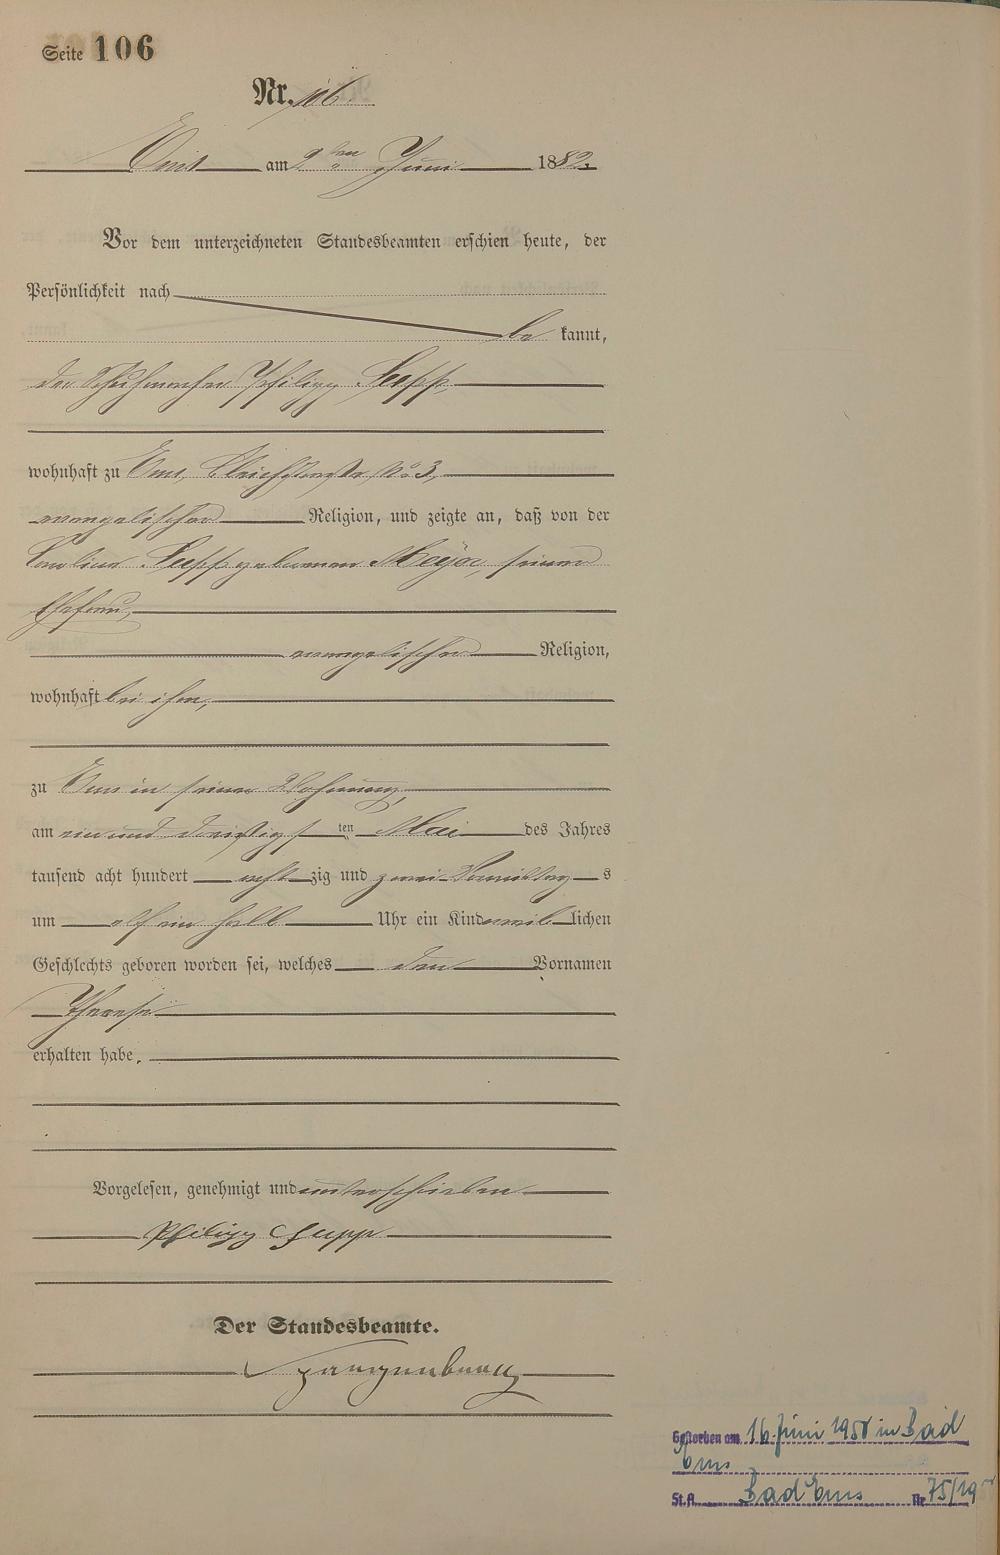 Seite 106
Nr. 106.
Ems am 2ten Juni 1882.
Vor dem unterzeichneten Standesbeamten erschien heute, der
Persönlichkeit nach
be kannt,
der Schuhmacher Philipp Supp,
wohnhaft zu Ems, No 3,
evangelischer Religion, und zeigte an, daß von der
Caroline Supp geborenen seiner
Ehefrau,
evangelischer Religion,
wohnhaft bei ihm,
zu Ems in seiner Wohnung,
am ein und dreißigsten Mai des Jahres
tausend acht hundert achtzig und zwei Vormittags
um elf ein halb Uhr ein Kind weiblichen
Geschlechts geboren worden sei, welches den Vornamen
Therese
erhalten habe.
Vorgelesen, genehmigt und unterschrieben
Philipp Supp
Der Standesbeamte.
Spangenberg
Gestorben am 16. Juni in Bad
Ems
St.A. Bad Ems Nr 75/19